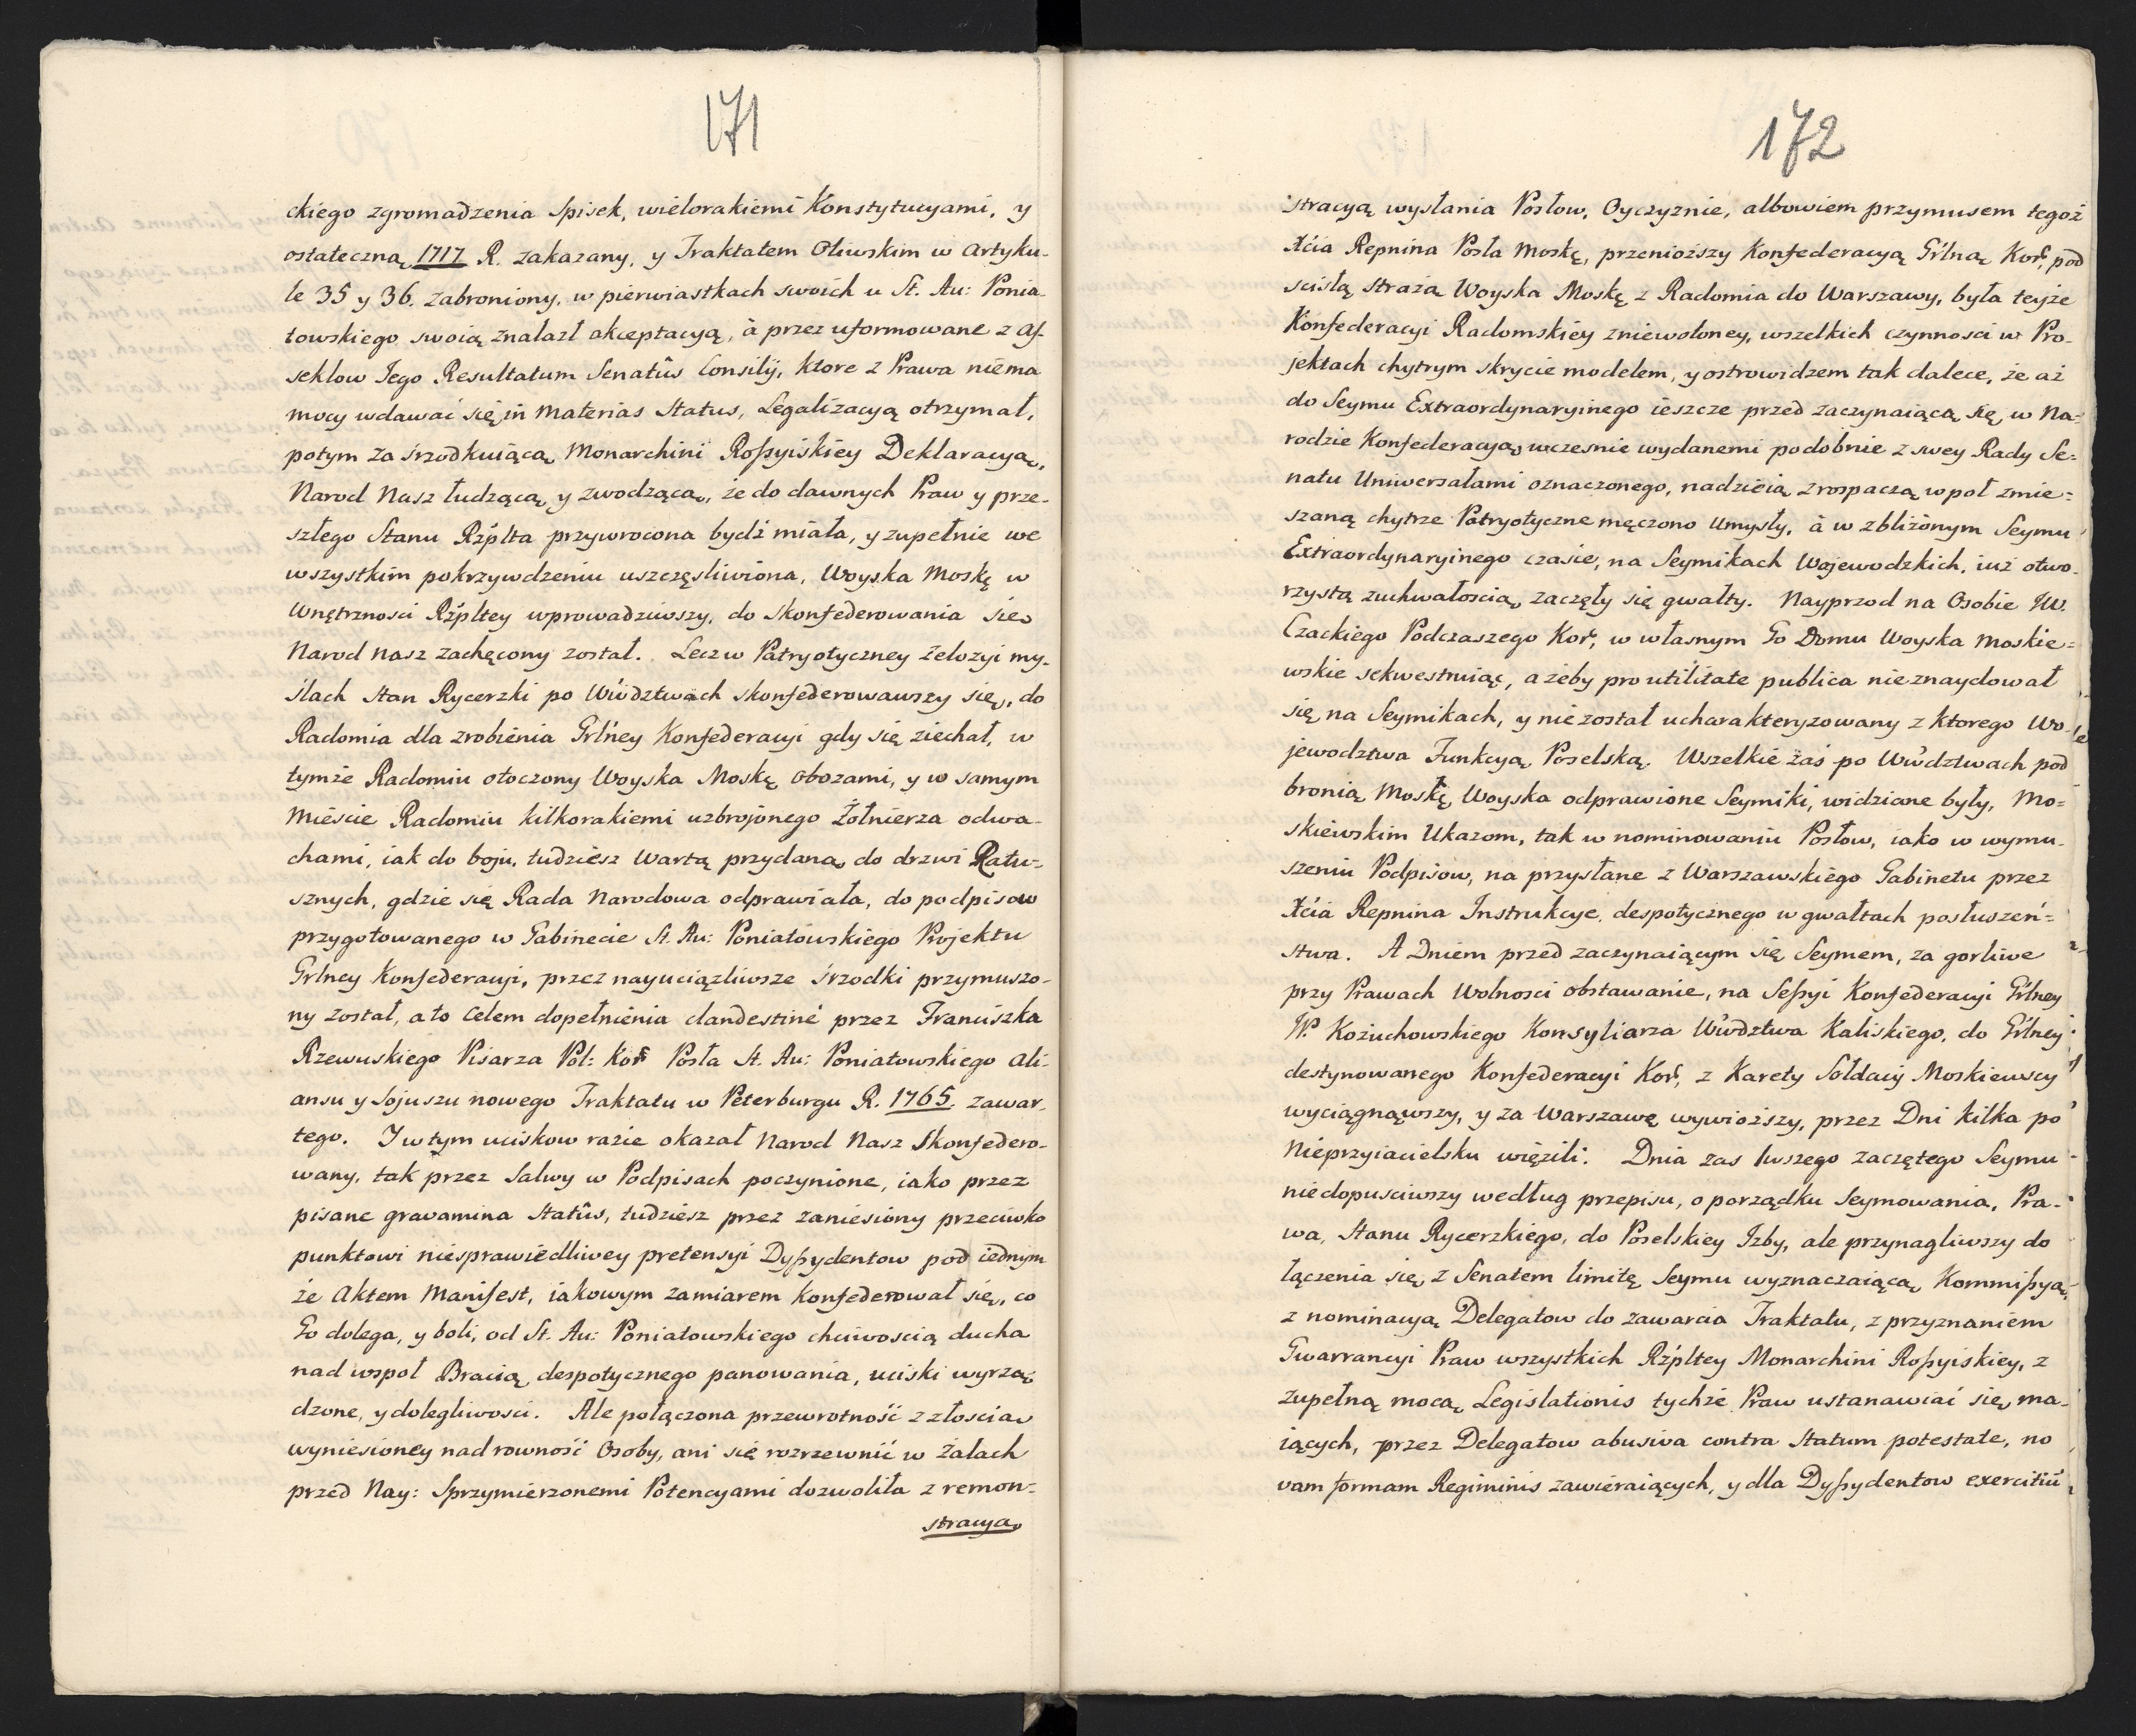 171
ckiego zgromadzenia Spisek, wielorakiemi Konstytucyami, y
ostateczną 1717 R. zakazany, y Traktatem Oliwskim w Artyku-
le 35 y 36. zabroniony, w pierwiastkach swoich u St. Au: Ponia-
towskiego swoią znalazł akceptacyą, à przez uformowane z Af-
seklow Jego Resultatum Senatûs Consilij, ktore z Prawa niema
mocy wdawać się in materias Status, Legalizacyą otrzymał,
potym za śrzodkuiącą Monarchini Roſsyiskiéy Deklaracyą,
Narod Nasz łudzącą y zwodzącą, że do dawnych Praw y prze-
szłego Stanu Rźplta przywrocona bydź miała, y zupełnie we
wszystkim pokrzywdzeniu uszczęsliwiona, Woyska Moskę w
Wnętrznosci Rźpltey wprowadziwszy, do skonfederowania się
Narod nasz zachęcony został. Lecz w Patryotyczney żelozyi my-
ślach Stan Rycerzki po Wwdztwach skonfederowawszy się, do
Radomia dla zrobienia Grlney Konfederacyi gdy się ziechał, w
tymże Radomiu otoczony Woyska Moskę Obozami, y w samym
Mieście Radomiu kilkorakiemi uzbrojonego Żołnierza odwa-
chami, iak do boju, tudziesz Wartą przydaną do drzwi Ratu-
sznych, gdzie się Rada Narodowa odprawiała, do podpisow
przygotowanego w Gabinecie St. Au: Poniatowskiego Projektu
Grlney Konfederacyi, przez nayuciązliwsze śrzodki przymuszo-
ny został, a to Celem dopełnienia clandestiné przez Franciszka
Rzewuskiego Pisarza Pol: Kor̃ Posła St. Au: Poniatowskiego Ali-
ansu y Sojuszu nowego Traktatu w Peterburgu R. 1765. zawar-
tego. I w tym uciskow razie okazał Narod Nasz Skonfedero-
wany, tak przez Salwy w Podpisach poczynione, iako przez
pisane gravamina Statûs, tudziesz przez zaniesiony przeciwko
punktowi niesprawiedliwey pretensyi Dyſsydentow pod iednym
że Aktem Manifest, iakowym zamiarem Konfederował się, co
Go dolega, y boli, od St. Au: Poniatowskiego chciwoscią ducha
nad wspoł Bracią despotycznego panowania, uciski wyrzą-
dzone, y dolegliwosci. Ale połączona przewrotność z złoscią
wyniesioney nad rowność Osoby, ani się rozrzewnić w Żalach
przed Nay: Sprzymierzonemi Potencyami dozwoliła z remon-
stracyą
172
stracyą wysłania Posłow, Oyczyznie, albowiem przymusem tegoż
Xcia Repnina Posła Moskę, przenioższy Konfederacyą Grlną Kor, pod
scisłą strażą Woyska Moskę z Radomia do Warszawy, była teyże
Konfederacyi Radomskiéy zniewoloney, wszelkich czynnosci w Pro-
jektach chytrym skrycie modelem, y ostrowidzem tak dalece, że aż
do Seymu Extraordynaryinego ieszcze przed zaczynaiącą się w Na-
rodzie Konfederacyą wczesnie wydanemi podobnie z swey Rady Se-
natu Uniwersałami oznaczonego, nadzieią z rospaczą wpoł zmie-
szaną chytrze Patryotyczne męczono Umysły, à w zbliżonym Seymu
Extraordynaryinego czasie, na Seymikach Wojewodzkich, iuż otwo-
rzystą zuchwałoscią zaczęły się gwałty. Nayprzod na Osobie JW.
Czackiego Podczaszego Kor, w własnym Go Domu Woyska Moskie-
wskie sekwestruiąc, ażeby pro utilitate publica nieznaydował
się na Seymikach, y niezostał ucharakteryzowany z ktorego Wo-
jewodztwa Funkcyą Poselską. Wszelkie zaś po Wwdztwach pod
bronią Moskę Woyska odprawione Seymiki, widziane były, Mo-
skiewskim Ukazom, tak w nominowaniu Posłow, iako w wymu-
szeniu Podpisow, na przysłane z Warszawskiego Gabinetu przez
Xcia Repnina Instrukcye, despotycznego w gwałtach posłuszeń-
stwa. A Dniem przed zaczynaiącym się Seymem, za gorliwe
przy Prawach Wolnosci obstawanie, na Seſsyi Konfederacyi Grlney
W. Kożuchowskiego Konsyliarza Wwdztwa Kaliskiego, do Grlney
destynowanego Konfederacyi Kor, z Karety Sołdacy Moskiewscy
wyciągnąwszy, y za Warszawę wywioższy, przez Dni kilka po
Nieprzyiacielsku więzili. Dnia zas 1wszego zaczętego Seymu
niedopusciwszy według przepisu, o porządku Seymowania, Pra-
wa, Stanu Rycerzkiego, do Poselskiey Izby, ale przynagliwszy do
łączenia się z Senatem limitę Seymu wyznaczaiącą Kommiſsyą,
z nominacyą Delegatow do zawarcia Traktatu, z przyznaniem
Gwarrancyi Praw wszystkich Rźpltey Monarchini Roſsyiskiey, z
zupełną mocą Legislationis tychże Praw ustanawiać się ma-
iących, przez Delegatow abusiva contra Statum potestate, no
vam formam Regiminis zawieraiących, y dla Dyſsydentow exercitiũ